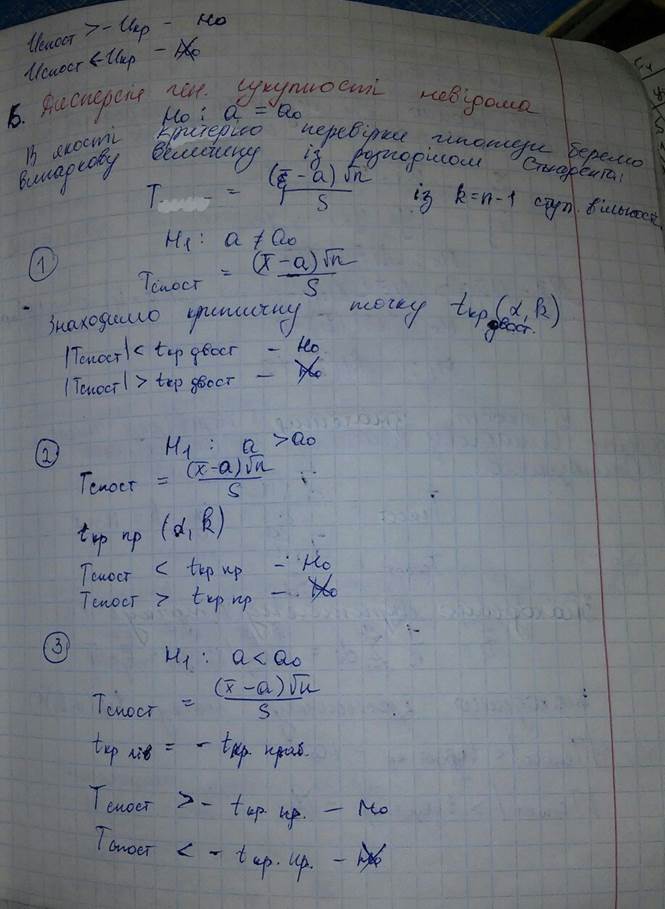 Uспост > - Uкр - H₀
Uспост < - Uкр - H̶₀̶
Б. Дисперсія ген. сукупності невідома
H₀ : a = a₀
В якості критерію перевірки гіпотези беремо
випадкову величину із розподілом Стьюдента:
T = (x̄ - a)√n / S із k = n-1 ступ. вільності.
① H₁ : a ≠ a₀
Tспост = (x̄ - a)√n / S
Знаходимо критичну точку tкр двост. (α, k)
|Tспост| < tкр двост - H₀
|Tспост| > tкр двост - H̶₀̶
② H₁ : a > a₀
Tспост = (x̄ - a)√n / S
tкр пр (α, k)
Tспост < tкр пр - H₀
Tспост > tкр пр - H̶₀̶
③ H₁ : a < a₀
Tспост = (x̄ - a)√n / S
tкр лів = - tкр. прав.
Tспост > - tкр. пр. - H₀
Tспост < - tкр. пр. - H̶₀̶